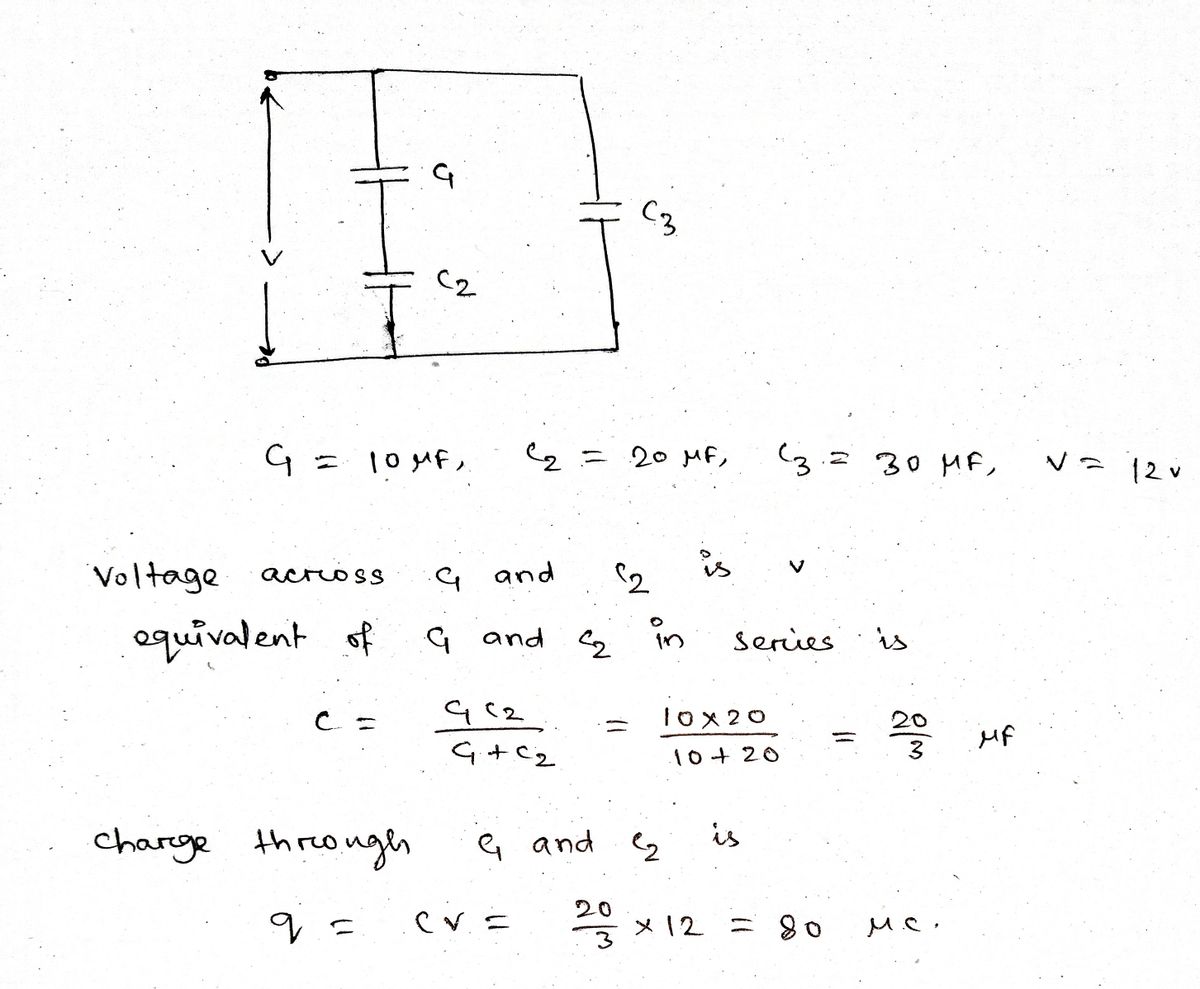 C1
C3
V
C2
C1 = 10 μF, C2 = 20 μF, C3 = 30 μF, V = 12 v
Voltage across C1 and C2 is v
equivalent of C1 and C2 in series is
C = C1 C2 / C1 + C2 = 10 × 20 / 10 + 20 = 20 / 3 μF
charge through C1 and C2 is
q = CV = 20 / 3 × 12 = 80 μC.